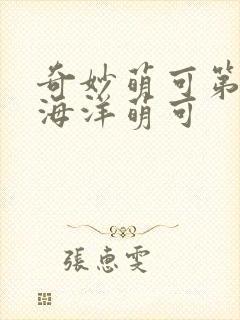 奇妙萌可第
海洋萌可
張惠雯